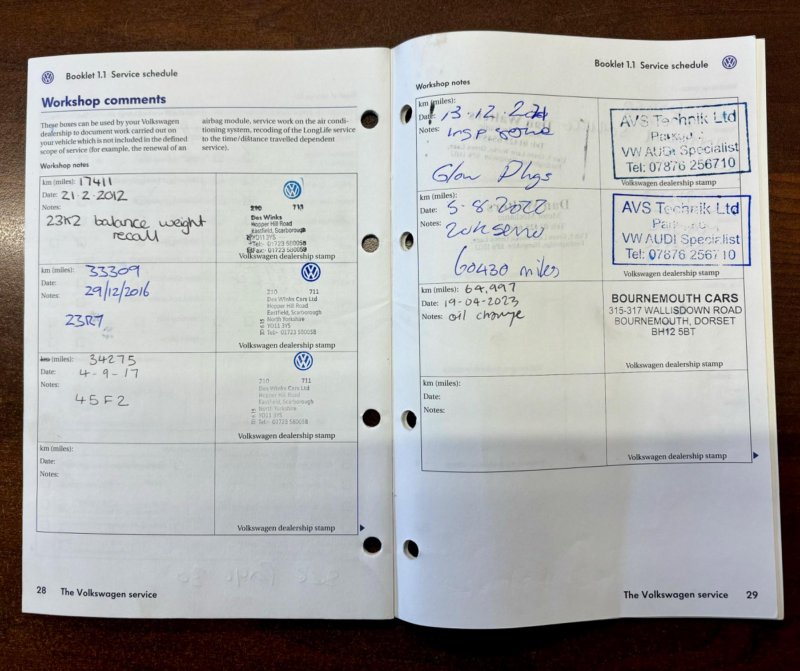 Booklet 1.1 Service schedule
Workshop comments
These boxes can be used by your Volkswagen
dealership to document work carried out on
your vehicle which is not included in the defined
scope of service (for example, the renewal of an
airbag module, service work on the air condi-
tioning system, recoding of the LongLife service
to the time/distance travelled dependent
service).
Workshop notes
km (miles): 17411
Date: 21.2.2012
Notes:
23K2 balance weight
recall
210 711
Das Winks
Hopper Hill Road
Eastfield, Scarborough
YO11 3YS
Tel:- 01723 580058
Volkswagen dealership stamp
km (miles): 33309
Date:
Notes: 29/12/2016
23R7
210 711
Das Winks Cars Ltd
Hopper Hill Road
Eastfield, Scarborough
North Yorkshire
YO11 3YS
Tel:- 01723 580058
Volkswagen dealership stamp
km (miles): 34275
Date: 4-9-17
Notes:
45F2
210 711
Das Winks Cars Ltd
Hopper Hill Road
Eastfield, Scarborough
North Yorkshire
YO11 3YS
Tel:- 01723 580058
Volkswagen dealership stamp
km (miles):
Date:
Notes:
Volkswagen dealership stamp
28 The Volkswagen service
Booklet 1.1 Service schedule
Workshop notes
km (miles):
Date: 13.12.2021
Notes:
Glow Plugs
AVS Technik Ltd
VW AUDI Specialist
Tel: 07876 256710
Volkswagen dealership stamp
km (miles):
Date: 5-8-2022
Notes:
60430 miles
AVS Technik Ltd
VW AUDI Specialist
Tel: 07876 256710
Volkswagen dealership stamp
km (miles): 64,997
Date: 19-04-2023
Notes: oil change
BOURNEMOUTH CARS
315-317 WALLISDOWN ROAD
BOURNEMOUTH, DORSET
BH12 5BT
Volkswagen dealership stamp
km (miles):
Date:
Notes:
Volkswagen dealership stamp
The Volkswagen service 29